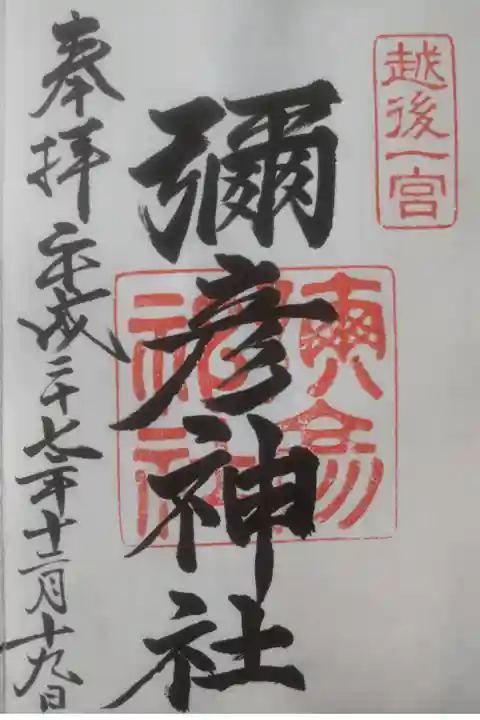 越後一宮
彌彦神社
奉拝 平成二十七年十二月十九日